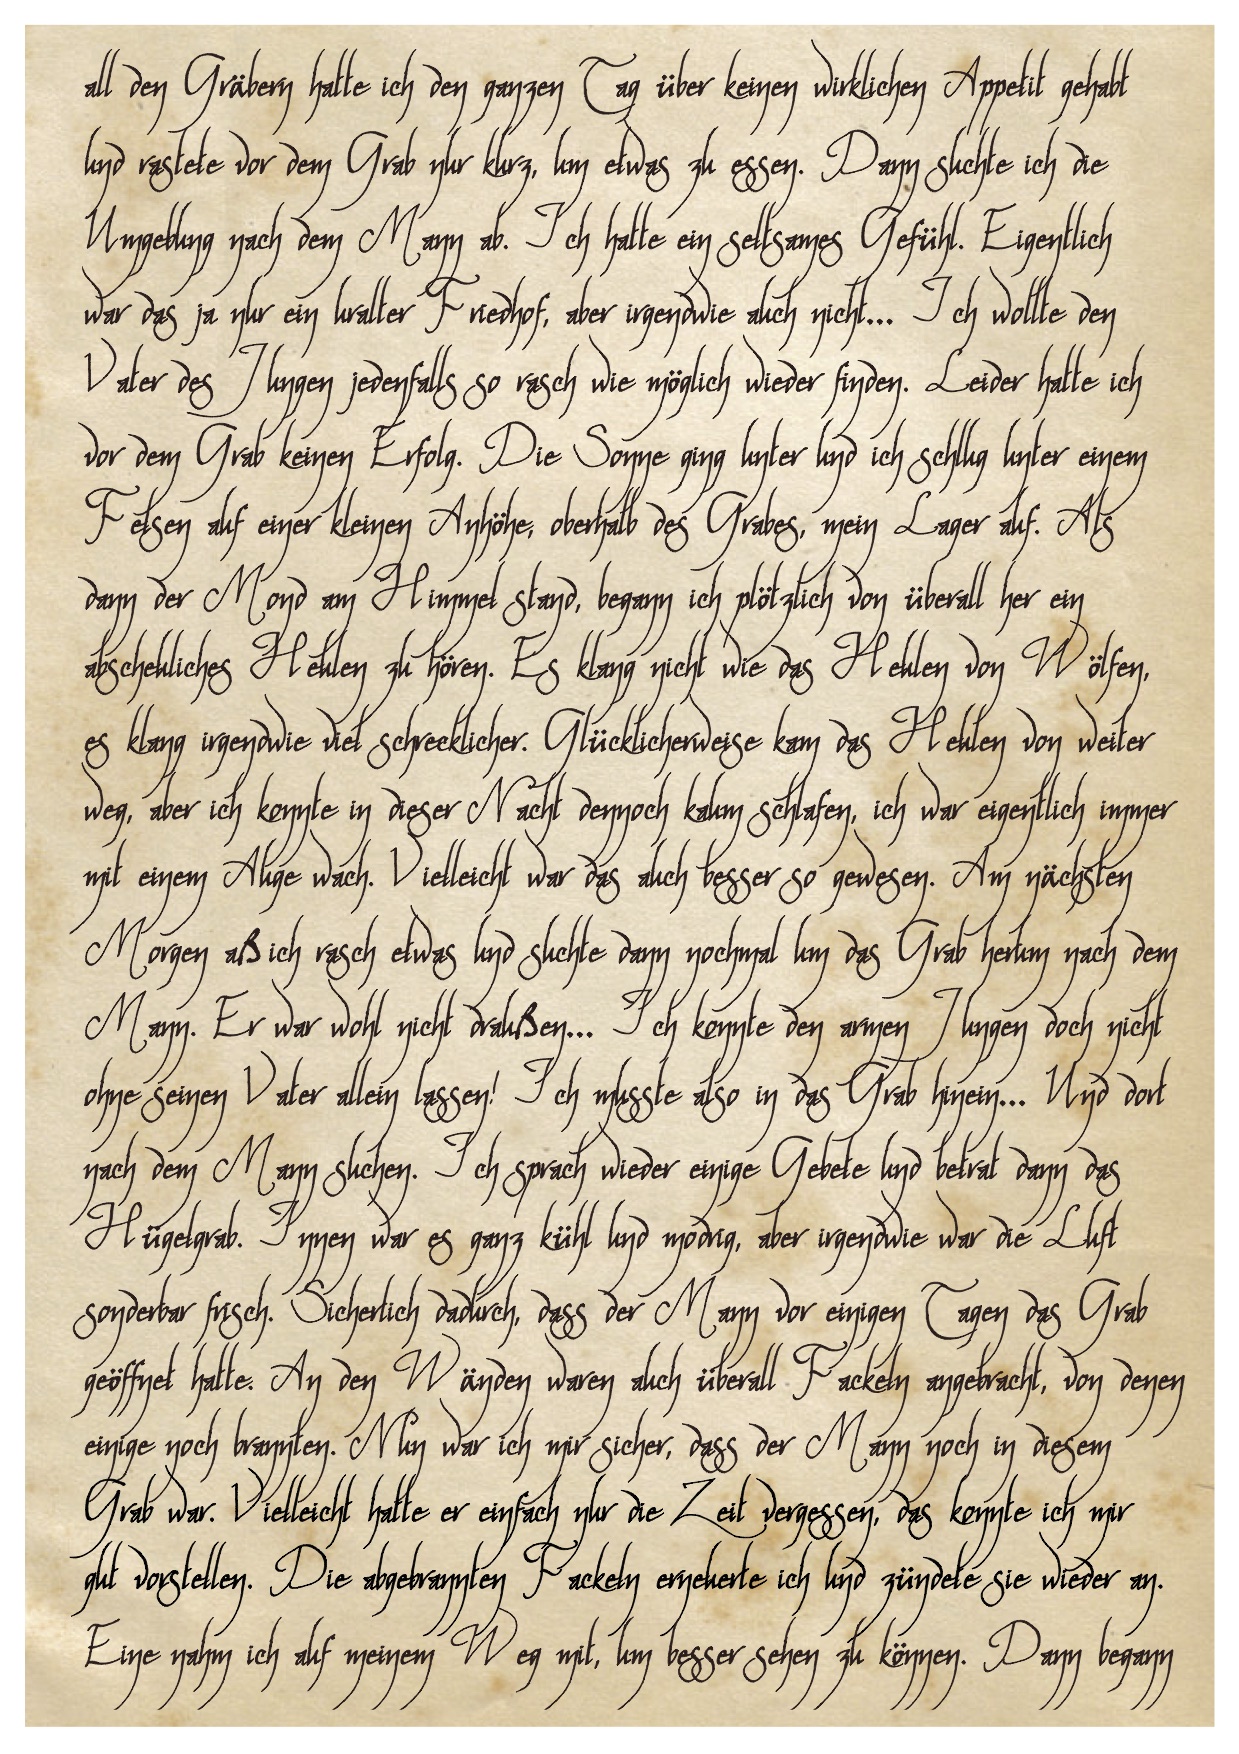 all den Gräbern hatte ich den ganzen Tag über keinen wirklichen Appetit gehabt
und rastete vor dem Grab nur kurz, um etwas zu essen. Dann suchte ich die
Umgebung nach dem Mann ab. Ich hatte ein seltsames Gefühl. Eigentlich
war das ja nur ein uralter Friedhof, aber irgendwie auch nicht... Ich wollte den
Vater des Jungen jedenfalls so rasch wie möglich wieder finden. Leider hatte ich
vor dem Grab keinen Erfolg. Die Sonne ging unter und ich schlug unter einem
Felsen auf einer kleinen Anhöhe, oberhalb des Grabes, mein Lager auf. Als
dann der Mond am Himmel stand, begann ich plötzlich von überall her ein
abscheuliches Heulen zu hören. Es klang nicht wie das Heulen von Wölfen,
es klang irgendwie viel schrecklicher. Glücklicherweise kam das Heulen von weiter
weg, aber ich konnte in dieser Nacht dennoch kaum schlafen, ich war eigentlich immer
mit einem Auge wach. Vielleicht war das auch besser so gewesen. Am nächsten
Morgen aß ich rasch etwas und suchte dann nochmal um das Grab herum nach dem
Mann. Er war wohl nicht draußen... Ich konnte den armen Jungen doch nicht
ohne seinen Vater allein lassen! Ich musste also in das Grab hinein... Und dort
nach dem Mann suchen. Ich sprach wieder einige Gebete und betrat dann das
Hügelgrab. Innen war es ganz kühl und modrig, aber irgendwie war die Luft
sonderbar frisch. Sicherlich dadurch, dass der Mann vor einigen Tagen das Grab
geöffnet hatte. An den Wänden waren auch überall Fackeln angebracht, von denen
einige noch brannten. Nun war ich mir sicher, dass der Mann noch in diesem
Grab war. Vielleicht hatte er einfach nur die Zeit vergessen, das konnte ich mir
gut vorstellen. Die abgebrannten Fackeln erneuerte ich und zündete sie wieder an.
Eine nahm ich auf meinem Weg mit, um besser sehen zu können. Dann begann